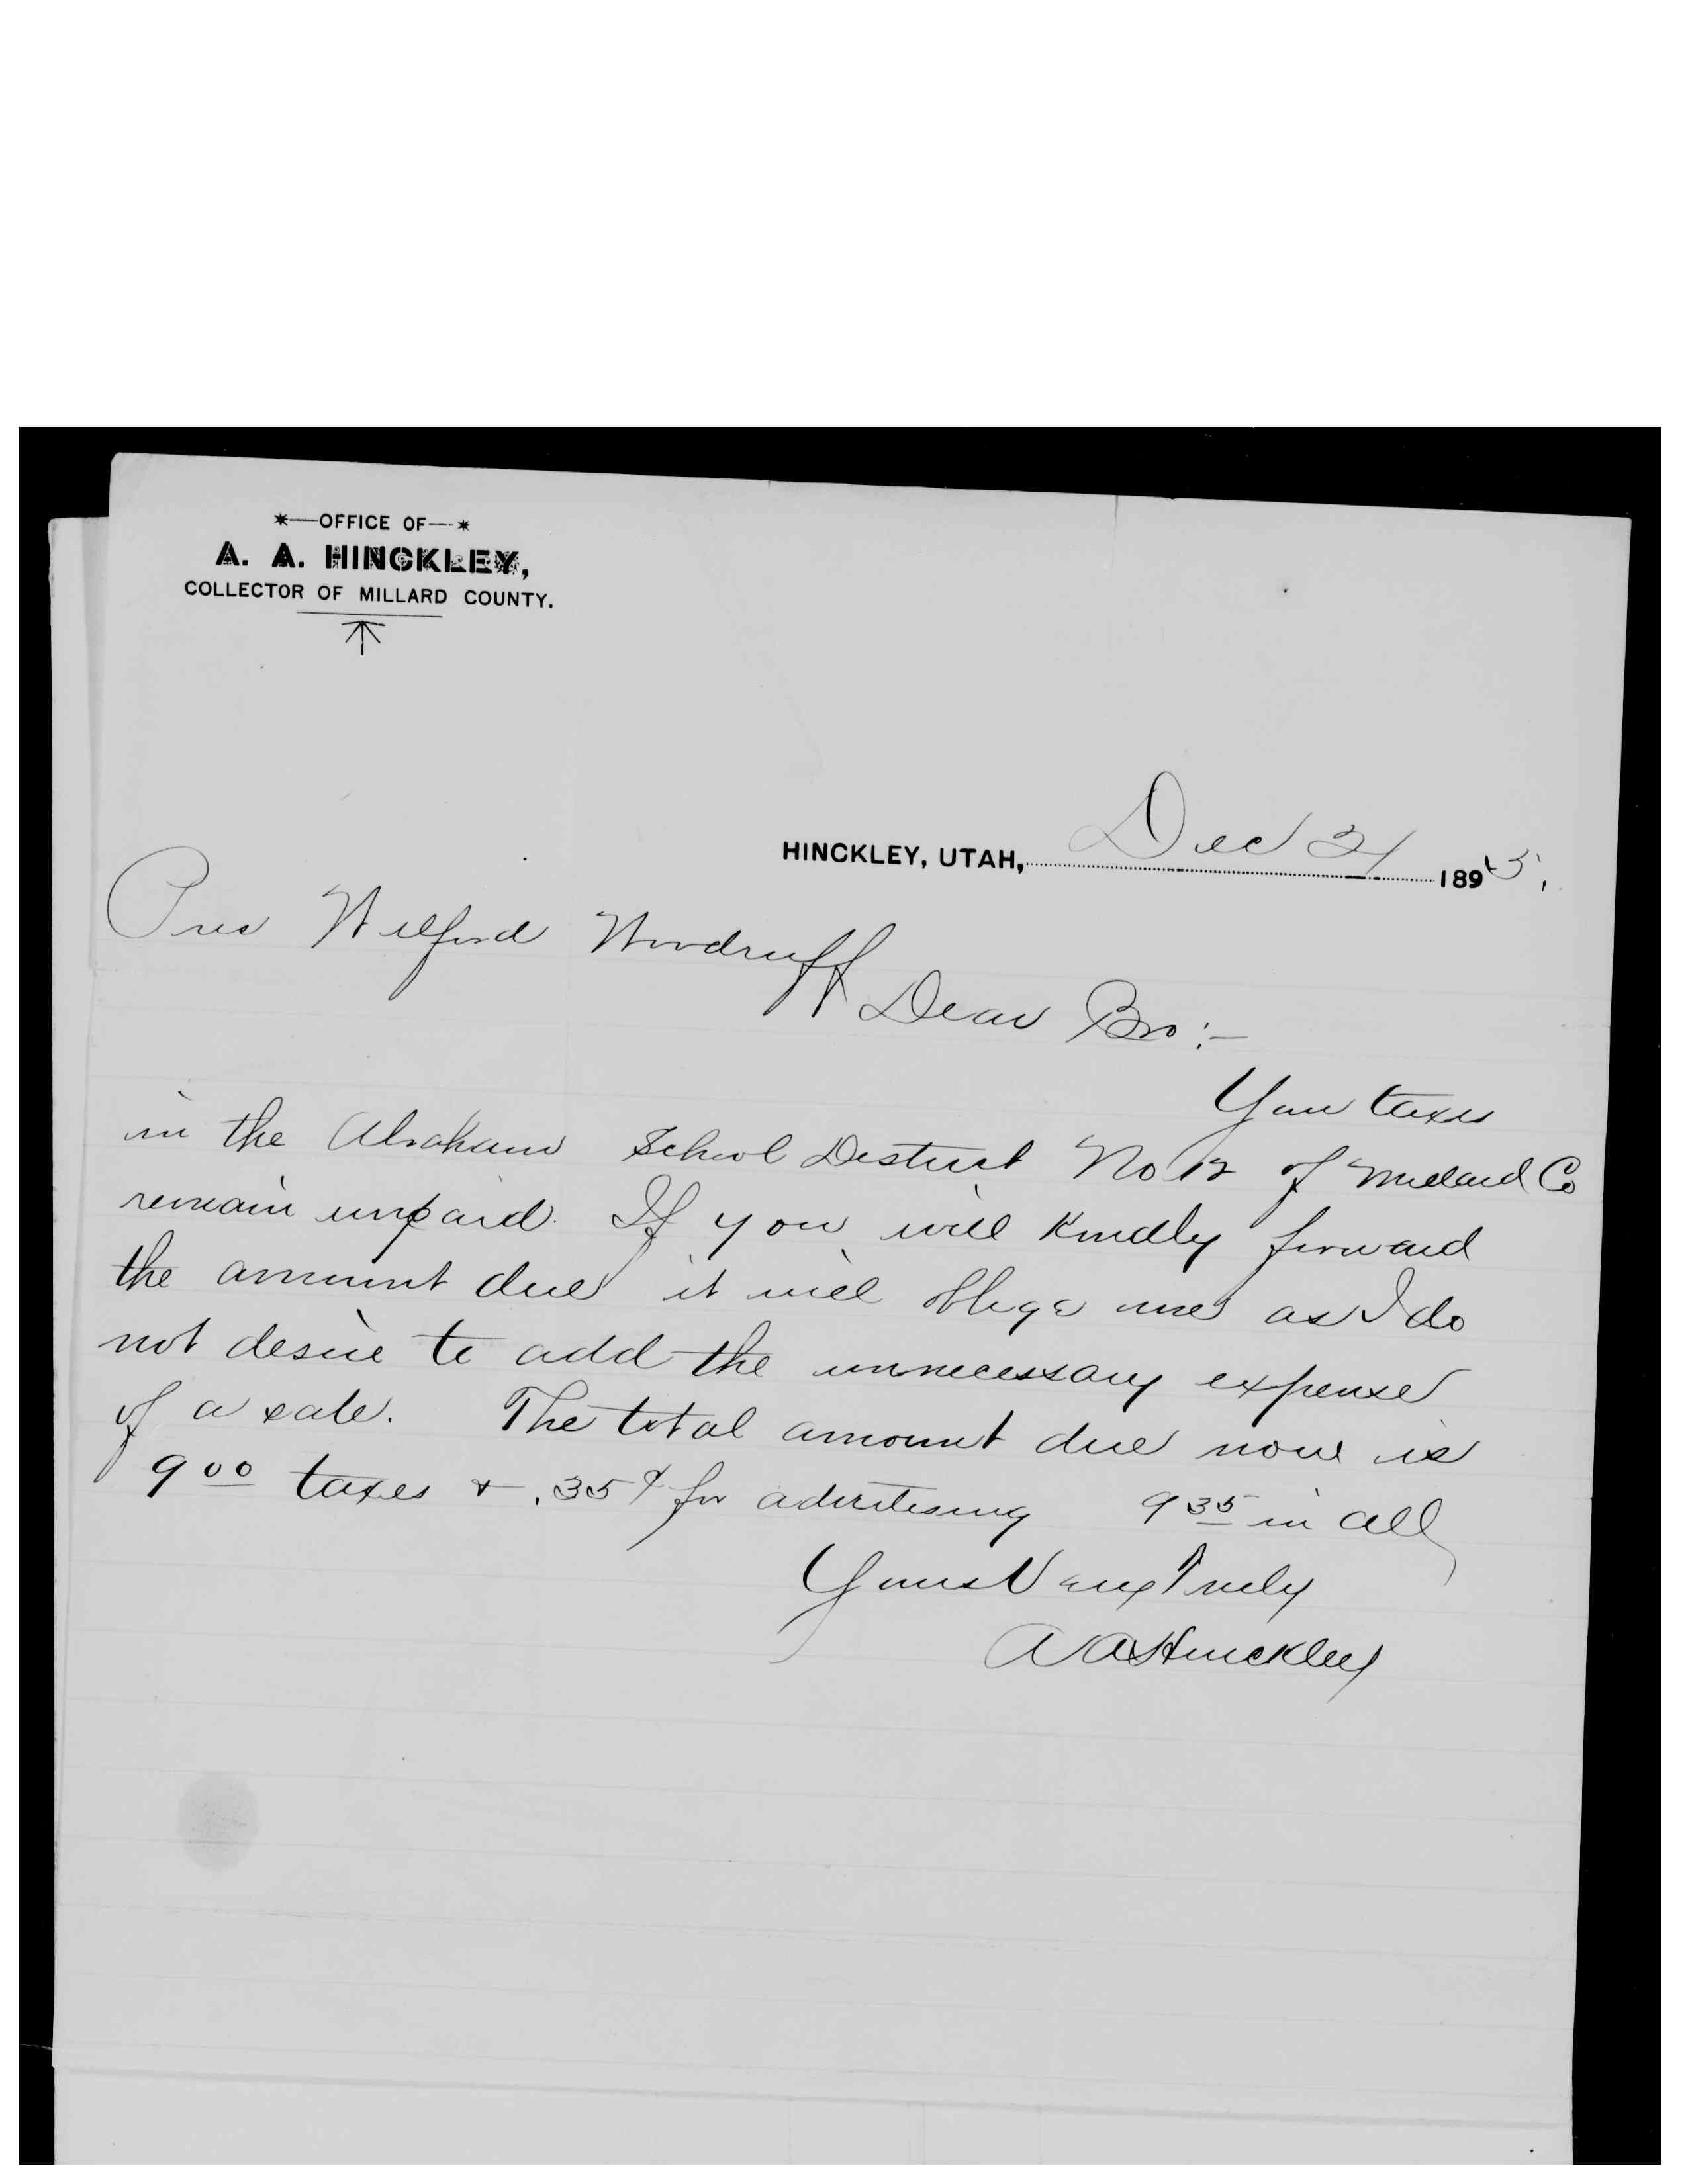 *—OFFICE OF—*
A. A. HINCKLEY,
COLLECTOR OF MILLARD COUNTY.
HINCKLEY, UTAH, Dec 21 1895.
Pres Wilford Woodruff
Dear Bro:-
Your taxes
in the Abraham School District No 12 of Millard Co
remain unpaid. If you will kindly forward
the amount due it will oblige me as I do
not desire to add the unnecessary expense
of a sale. The total amount due now is
9 00 taxes + .35¢ for advertising 9 35 in all
Yours Very Truly
A A Hinckley